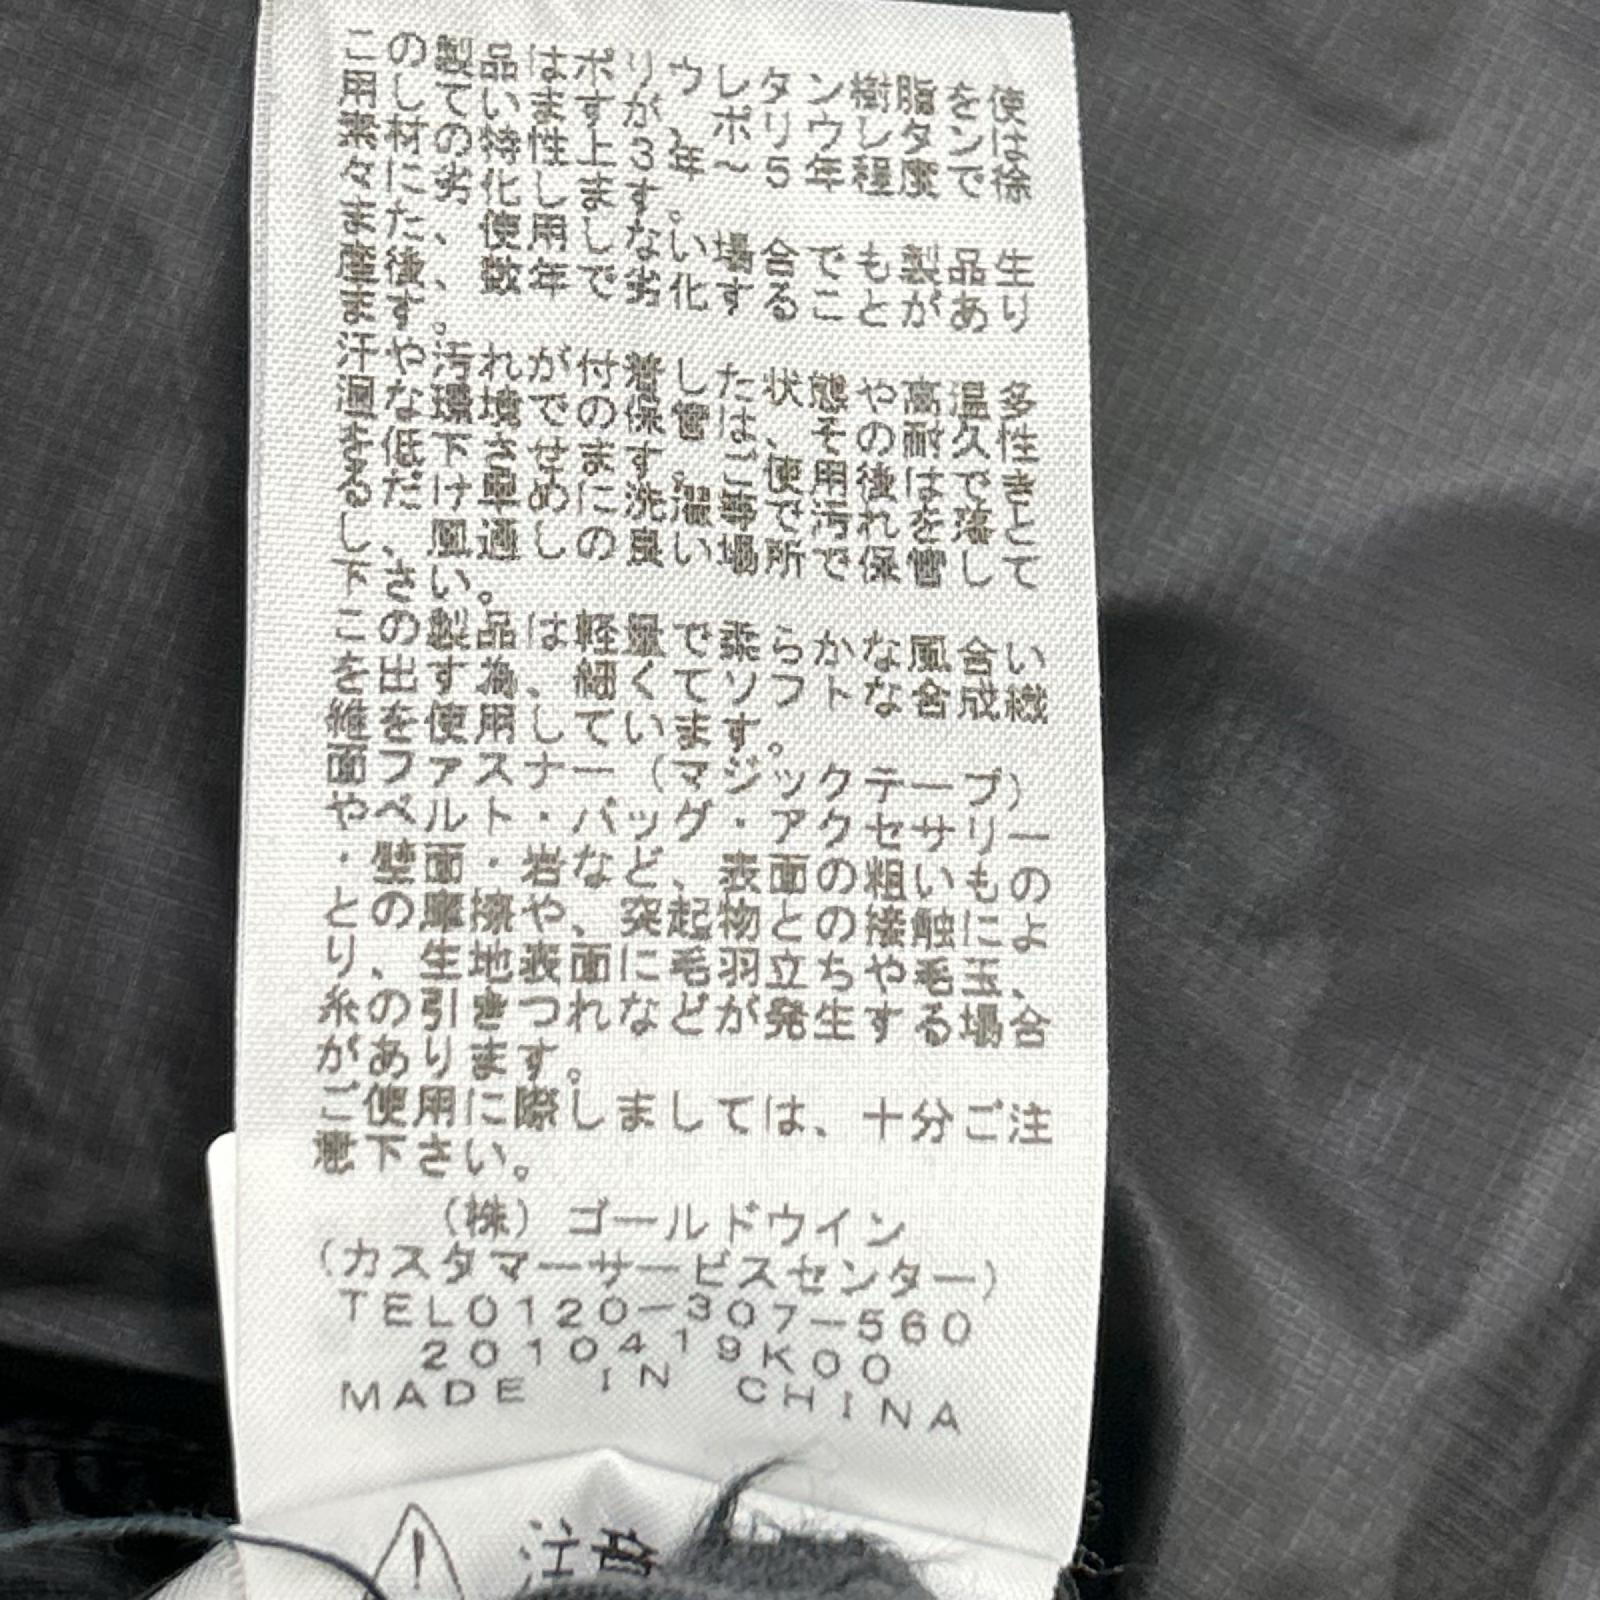 この製品はポリウレタン樹脂を使
用していますが、ポリウレタンは
素材の特性上3年～5年程度で徐
々に劣化します。
また、使用しない場合でも製品生
産後、数年で劣化することがあり
ます。
汗や汚れが付着した状態や高温多
湿な環境での保管は、その耐久性
を低下させます。ご使用後はできる
だけ早めに洗濯等で汚れを落とし
、風通しの良い場所で保管して
下さい。
この製品は軽量で柔らかな風合い
を出す為、細くてソフトな合成繊
維を使用しています。
面ファスナー（マジックテープ）
やベルト・バッグ・アクセサリー
・壁面・岩など、表面の粗いもの
との摩擦や、突起物との接触によ
り、生地表面に毛羽立ちや毛玉、
糸の引きつれなどが発生する場合
があります。
ご使用に際しましては、十分ご注
意下さい。
（株）ゴールドウイン
（カスタマーサービスセンター）
TEL0120-307-560
2010419K00
MADE IN CHINA
注意